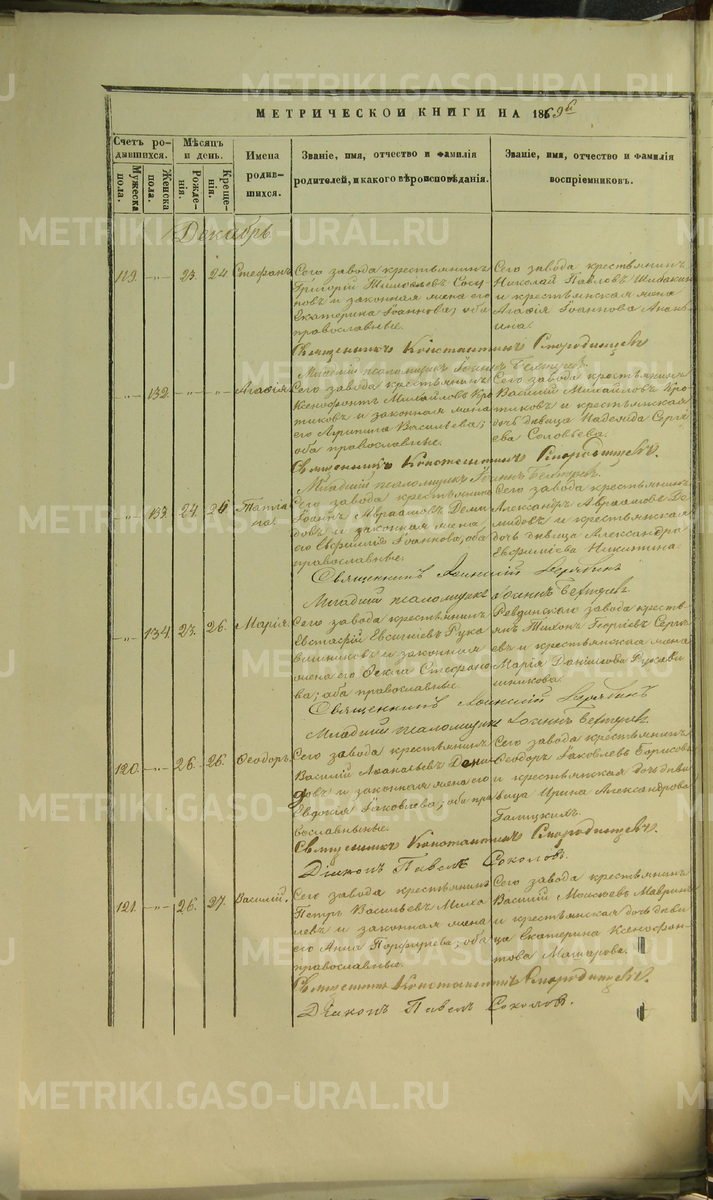 МЕТРИЧЕСКОЙ КНИГИ НА 1869 й
Счетъ родившихся.
Мужеска пола.
Женска пола.
Мѣсяцъ и день.
Рожденія.
Крещенія.
Имена родившихся.
Званіе, имя, отчество и фамилія
родителей, и какого вѣроисповѣданія.
Званіе, имя, отчество и фамилія
воспріемниковъ.
Декабрь
119. -"- 23. 24 Стефанъ
Сего завода крестьянинъ
Григорій Тимофеевъ
и законная жена его
Екатерина Іоаннова; оба
православные.
Сего завода крестьянинъ
Николай Павловъ
и крестьянская жена
Агафія Іоаннова
Священникъ Константинъ Смородинцевъ
Младшій псаломщикъ Іоаннъ
-"- 132. -"- -"- Агафія
Сего завода крестьянинъ
Ксенофонтъ Михайловъ Кро
тиковъ и законная жена
его Агрипина Васильева;
оба православные.
Сего завода крестьянинъ
Василій Михайловъ Кро
тиковъ и крестьянская
дочь дѣвица Надежда Серге
ева Соловьева.
Священникъ Константинъ Смородинцевъ.
Младшій псаломщикъ Іоаннъ
-"- 133. 24. 24 Татіа
на.
Сего завода крестьянинъ
Іоаннъ Авраамовъ Деми
довъ и законная жена
его Евфимія Іоаннова; оба
православные.
Сего завода крестьянинъ
Александръ Авраамовъ Де
мидовъ и крестьянская
дочь дѣвица Александра
Евфиміева Никитина
Священникъ
Младшій псаломщикъ Іоаннъ
-"- 134. 23. 26. Марія.
Сего завода крестьянинъ
Евстафій Евсигнеевъ Рука
вишниковъ и законная
жена его Стефано
ва; оба православные.
Ревдинскаго завода кресть
янъ Тихонъ Георгіевъ
и крестьянская жена
Марія Даніилова Рукави
шникова.
Священникъ
Младшій псаломщикъ Іоаннъ
120. -"- 26. 26. Ѳеодоръ.
Сего завода крестьянинъ
Василій Аѳанасьевъ Деми
довъ и законная жена его
Евдокія Іаковлева; оба пра
вославные.
Сего завода крестьянинъ
Ѳеодоръ Іаковлевъ Борисовъ
и крестьянская дочь дѣ
вица Ирина Александрова
Священникъ Константинъ Смородинцевъ.
Діаконъ Павелъ Соколовъ.
121. -"- 26. 27. Василій.
Сего завода крестьянинъ
Петръ Васильевъ Миха
левъ и законная жена
его Анна Порфирьева; оба
православные.
Сего завода крестьянинъ
Василій Моисеевъ Мавринъ
и крестьянская дочь дѣви
ца Екатерина Ксенофон
това
Священникъ Константинъ Смородинцевъ.
Діаконъ Павелъ Соколовъ.
METRIKI.GASO-URAL.RU